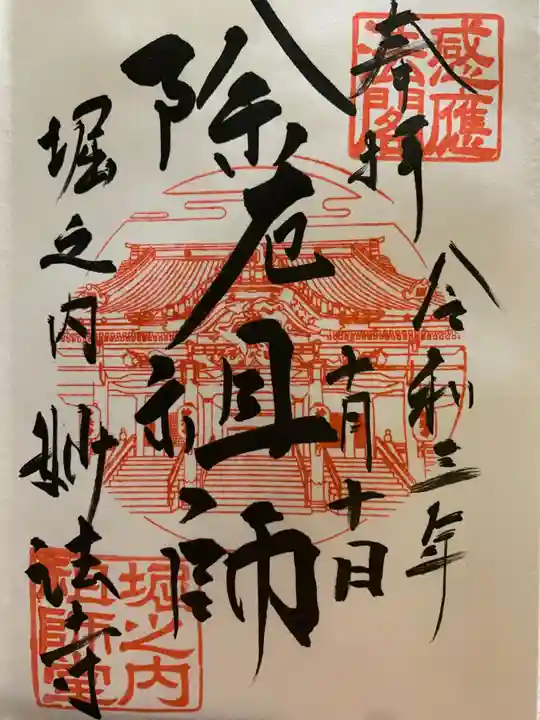 奉拝
令和三年
十月十日
除厄祖師
堀之内 妙法寺
感應
法閣
堀之内
祖師堂